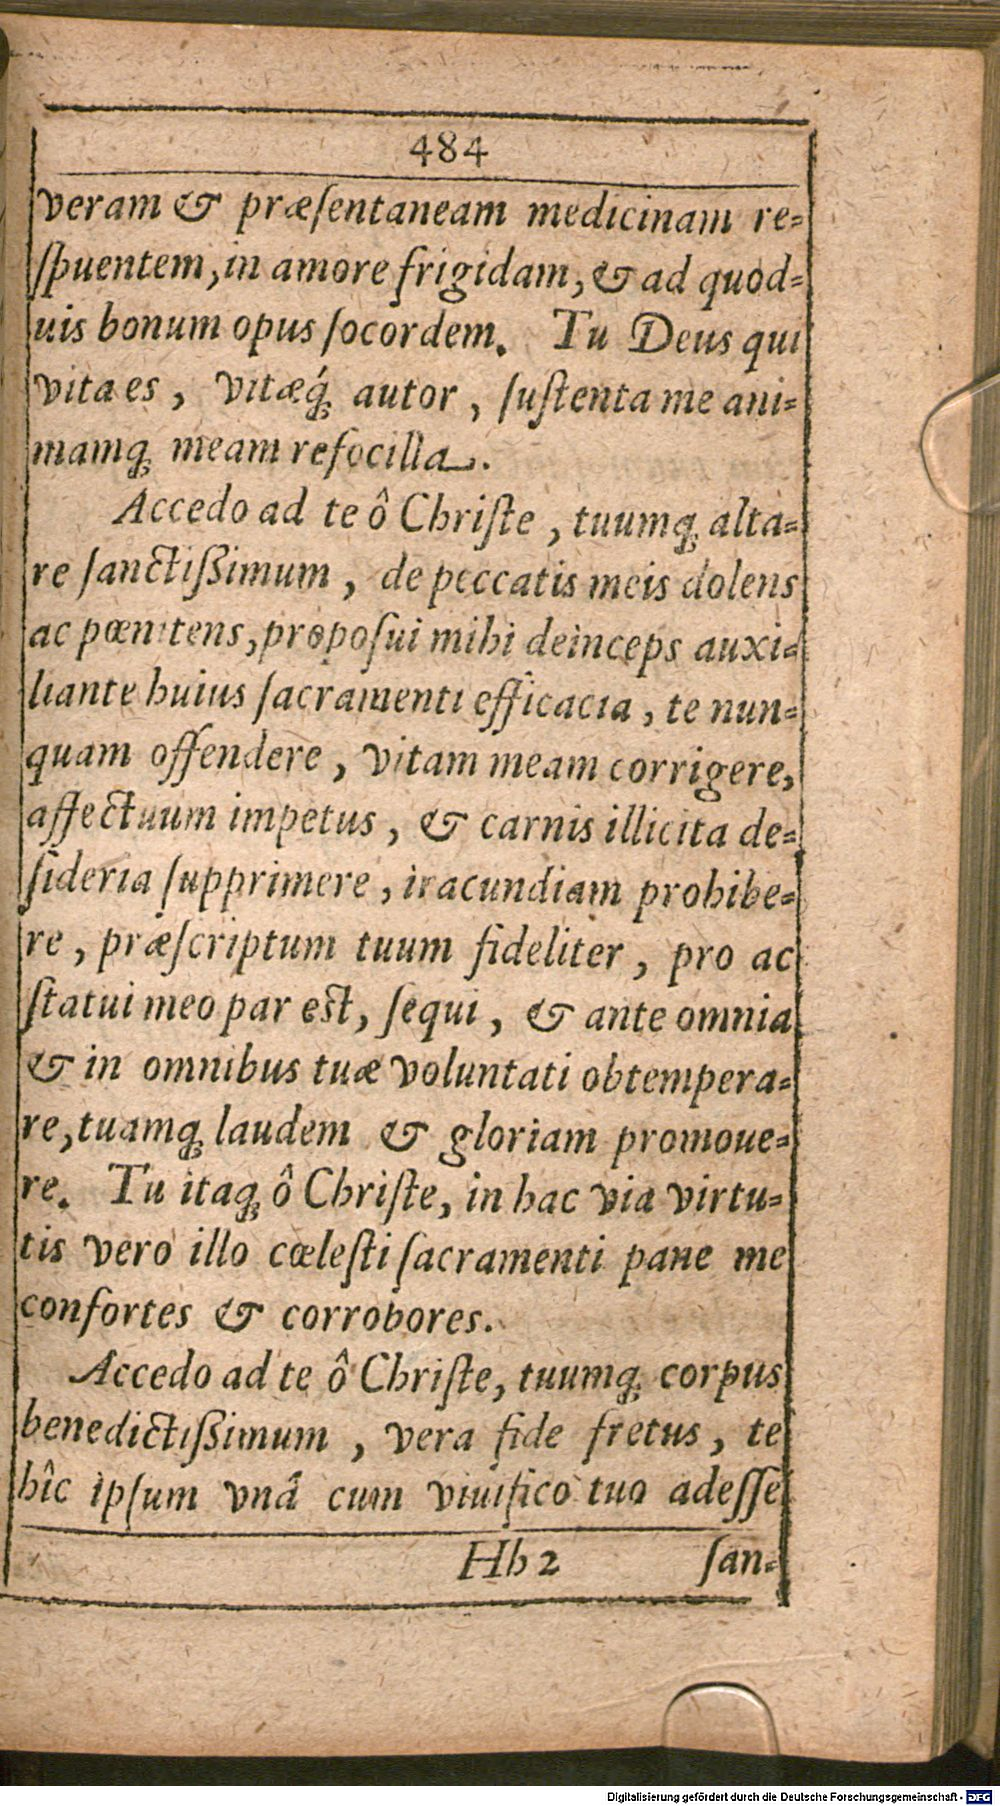 484
veram & præſentaneam medicinam re=
ſpuentem, in amore frigidam, & ad quod=
uis bonum opus ſocordem. Tu Deus qui
vita es, vitæq́; autor, ſuſtenta me ani=
mamq; meam refocilla.
Accedo ad te ô Chriſte, tuumq; alta=
re ſanctiſſimum, de peccatis meis dolens
ac pœnitens, propoſui mihi deinceps auxi=
liante huius ſacramenti efficacia, te nun=
quam offendere, vitam meam corrigere,
affectuum impetus, & carnis illicita de=
ſideria ſupprimere, iracundiam prohibe=
re, præſcriptum tuum fideliter, pro ac
ſtatui meo par est, ſequi, & ante omnia
& in omnibus tuæ voluntati obtempera=
re, tuamq; laudem & gloriam promoue=
re. Tu itaq; ô Chriſte, in hac via virtu=
tis vero illo cœleſti ſacramenti pane me
confortes & corrobores.
Accedo ad te ô Chriſte, tuumq; corpus
benedictiſſimum, vera fide fretus, te
hîc ipſum vnâ cum viuifico tuo adeſſe
Hh 2 ſan=
Digitalisierung gefördert durch die Deutsche Forschungsgemeinschaft - DFG